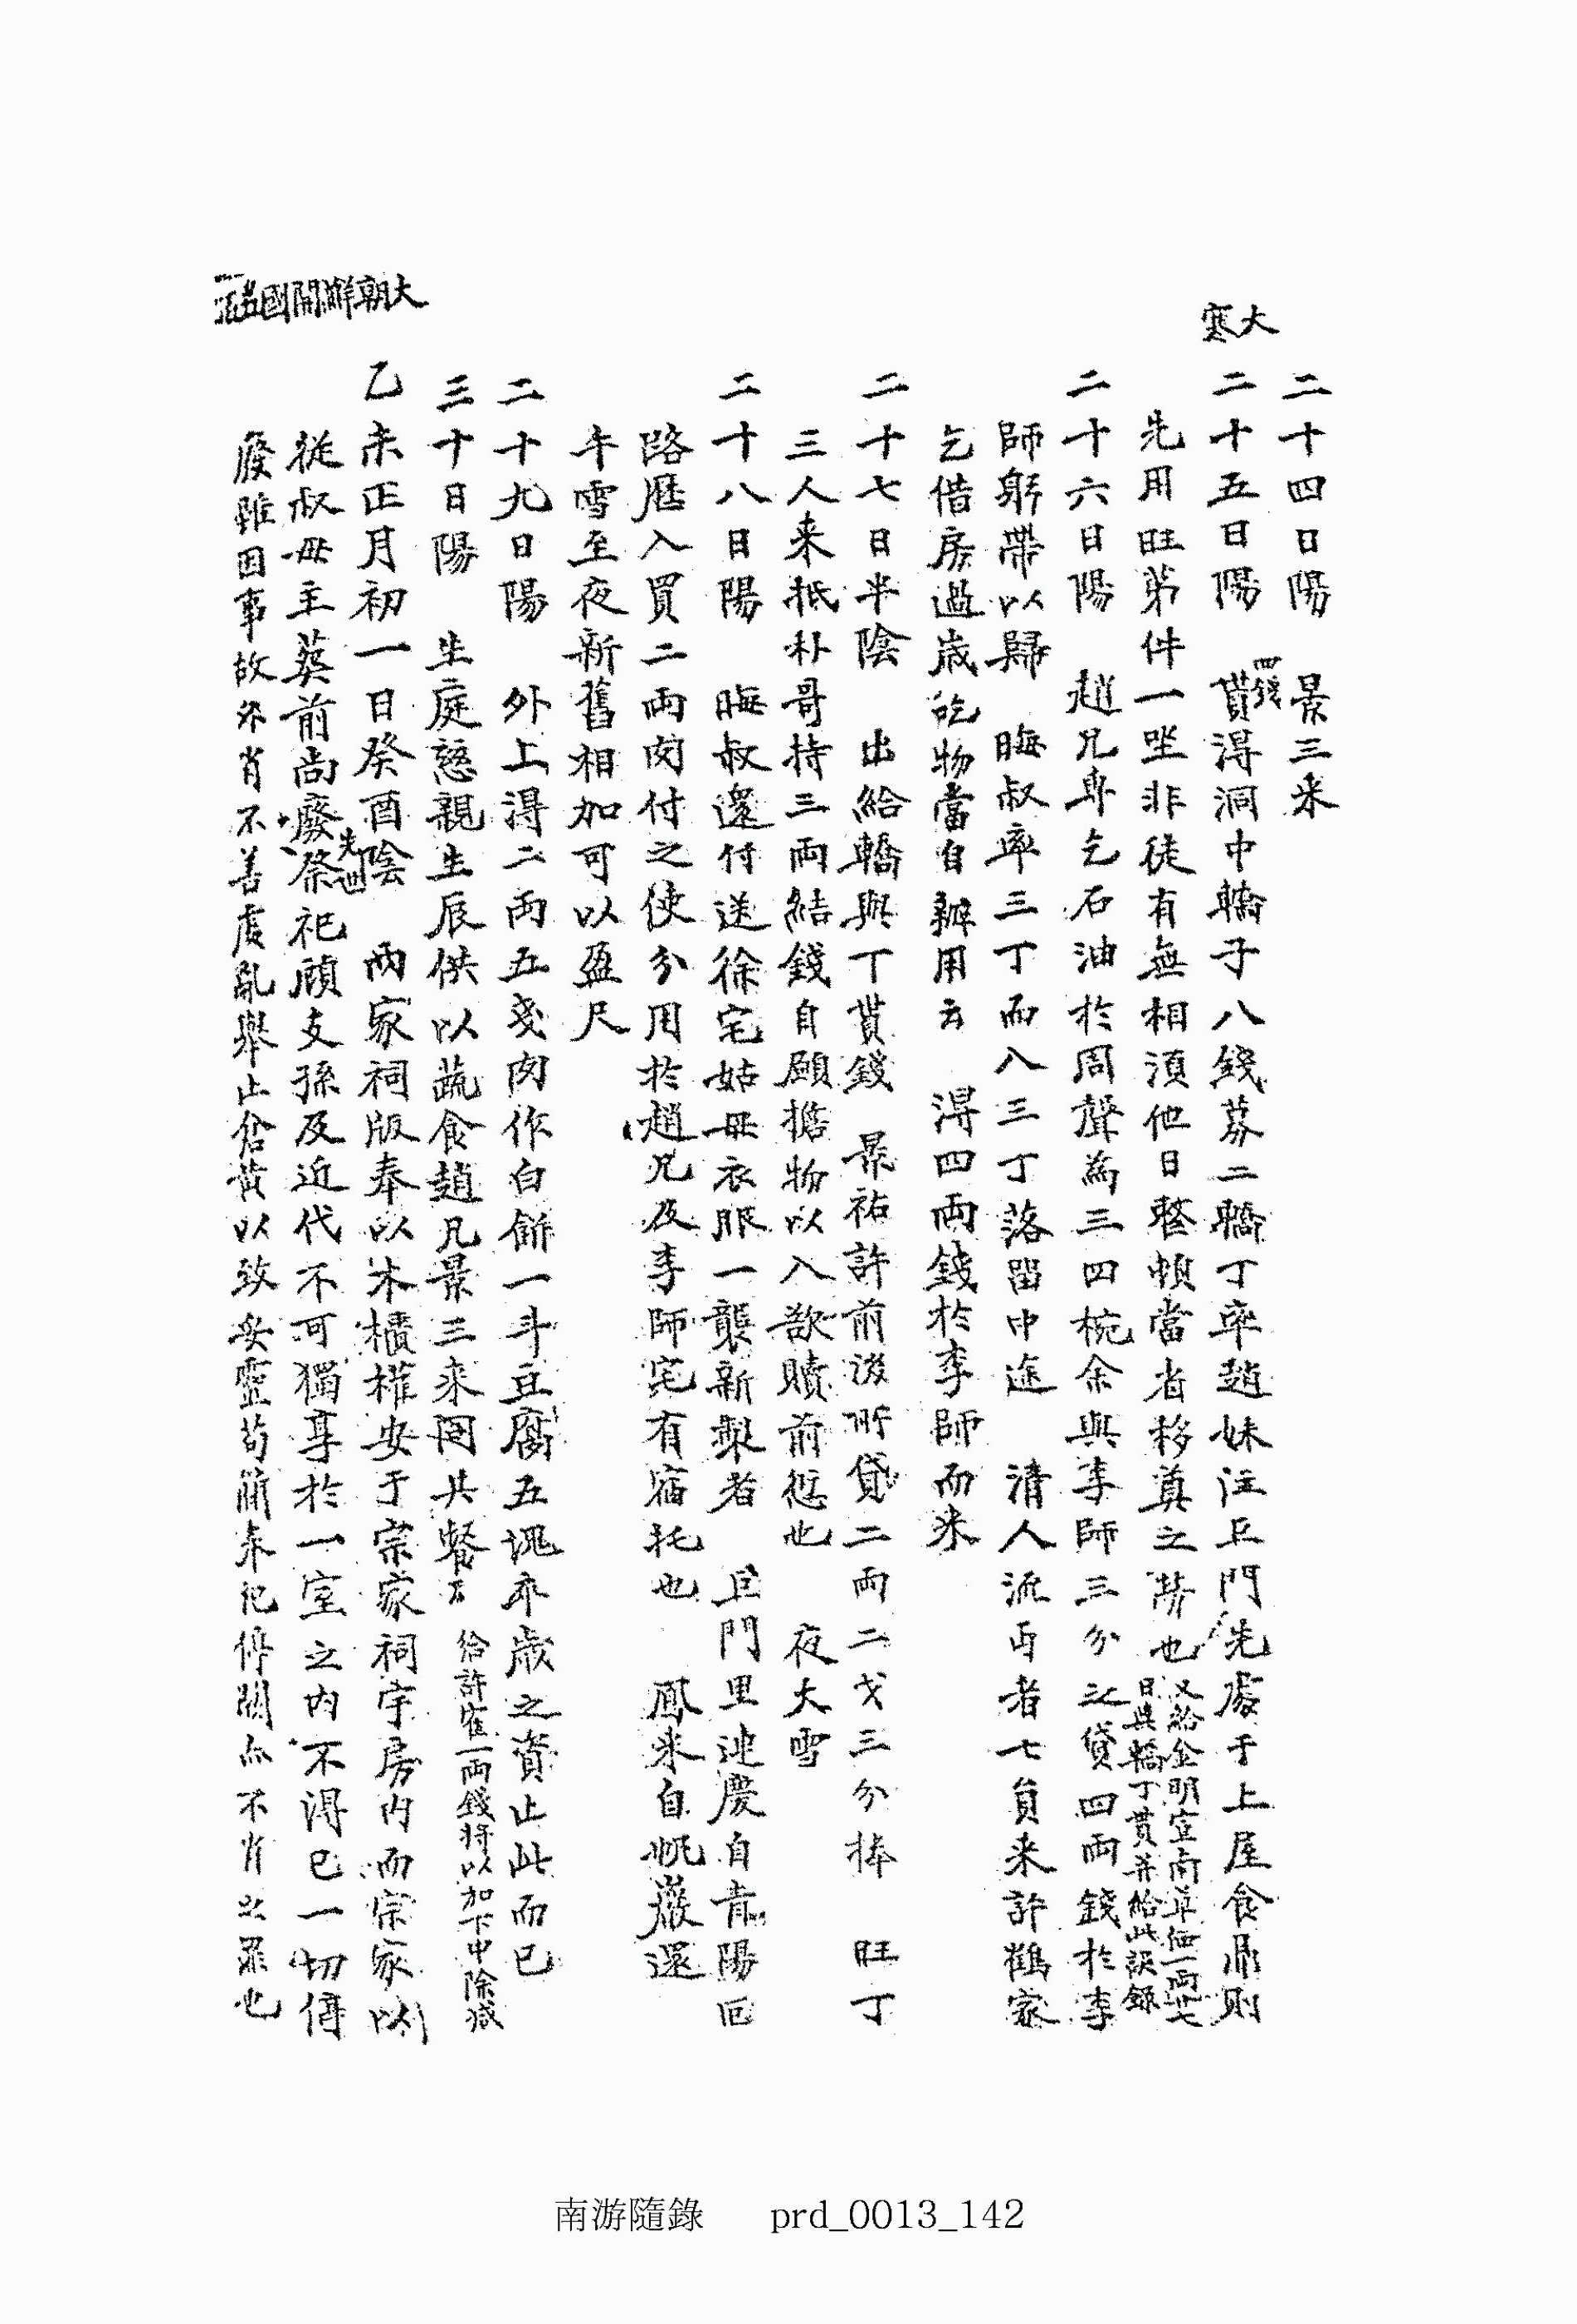 二十四日陽　景三来
大寒
二十五日陽　四戔貰得洞中轎子八錢募二轎丁率趙妹往丘門先處于上屋食鼎則
先用旺弟件一坐非徒有無相湏他日整頓當省移奠之勞也又給金明宣南草価一兩七
日與轎丁貰并給此誤錄
二十六日陽　趙兄専乞石油於周聲為三四椀余與李師三分之貸四兩錢於李
師躬帶以歸　晦叔率三丁而八三丁落留中途　清人流丐者七負来許鶴家
乞借房過歲吃物當自辦用云　得四兩錢於李師而来
二十七日半陰　出給轎與丁貰錢　景祐許前後所貸二兩二戔三分捧　旺丁
三人来抵朴哥持三兩結錢自願擔物以入欲贖前愆也　夜大雪
二十八日陽　晦叔還付送徐宅姑母衣服一襲新製者　丘門里連慶自青陽回
路歷入買二兩肉付之使分用於趙兄及李師宅有宿托也　鳳来自帆巖還
午雪至夜新舊相加可以盈尺
二十九日陽　外上得二兩五戔肉作白餅一斗豆腐五塊卒歲之資止此而已
三十日陽　生庭慈親生辰供以蔬食趙兄景三来同共餐云　給許雀一兩錢將以加下中除减
大朝鮮開國五百
乙未正月初一日癸酉陰　兩家祠版奉以木櫝權安于宗家祠宇房内而宗家以
從叔母主葬前尚廢祭先世祀頋支孫及近代不可獨享於一室之内不得已一切停
廢雖因事故不肖不善處亂舉止倉黃以致妥靈苟簡年祀停闕而不肖之罪也
南游隨錄　prd_0013_142